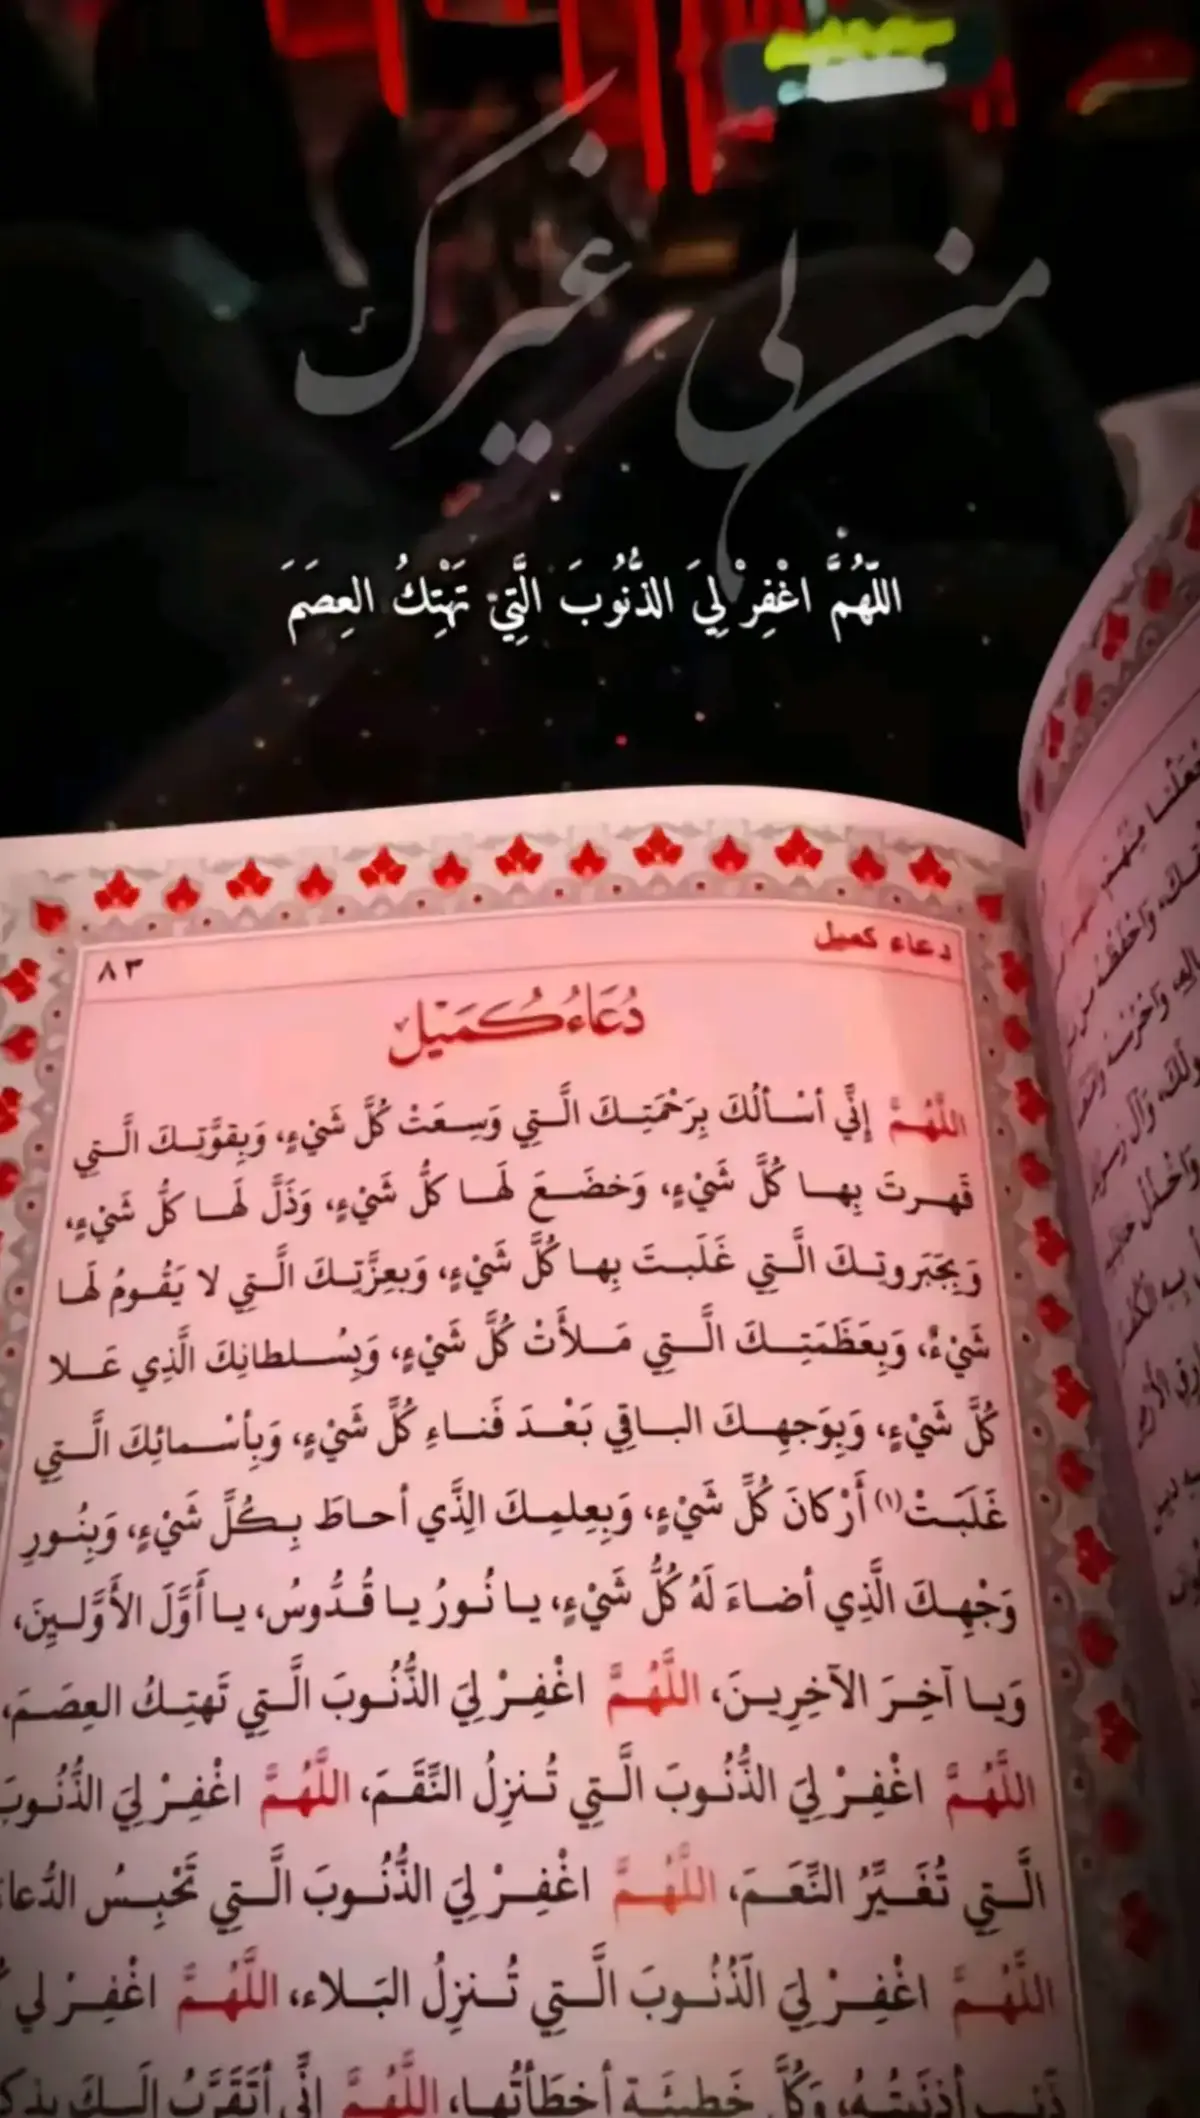 من لي غيرك
اللَّهُمَّ اغْفِرْ لِيَ الذُّنُوبَ الَّتِي تَهْتِكُ العِصَمَ
دعاء كميل
٨٣
دُعَاءُ كُمَيْل
اللَّهُمَّ إِنَّي أسْألُكَ بِرَحْمَتِكَ الَّتِي وَسِعَتْ كُلَّ شَيْءٍ، وَبِقوَّتِكَ الَّتِي
قَهرتَ بِها كُلَّ شَيْءٍ، وَخضَعَ لَها كلُّ شَيْءٍ، وَذَلَّ لَها كلُّ شَيْءٍ،
وَبِجَبَروتِكَ الَّتِي غَلَبتَ بِها كُلَّ شَيْءٍ، وَبعِزَّتِكَ الَّتِي لا يَقُومُ لَها
شَيْءٌ، وَبِعَظَمَتِكَ الَّتِي مَلأَتْ كُلَّ شَيْءٍ، وَبِسُلطانِكَ الَّذِي عَلا
كُلَّ شَيْءٍ، وَبِوَجهِكَ الباقِي بَعْدَ فَناءِ كُلَّ شَيْءٍ، وَبِأسْمائِكَ الَّتِي
غَلَبَتْ(١) أَرْكانَ كُلَّ شَيْءٍ، وَبِعِلمِكَ الِذَّي أحاطَ بِكُلَّ شَيْءٍ، وَبِنُورِ
وَجْهِكَ الَّذِي أضاءَ لَهُ كُلُّ شَيْءٍ، يا نُورُ يا قُدُّوسُ، يا أَوَّلَ الأَوَّلينَ،
وَيا آخِرَ الآخِرِينَ، اللَّهُمَّ اغْفِرْ لِيَ الذُّنُوبَ الَّتِي تَهتِكُ العِصَمَ،
اللَّهُمَّ اغْفِرْ لِيَ الذُّنُوبَ الَّتِي تُنزِلُ النِّقَمَ، اللَّهُمَّ اغْفِرْ لِيَ الذُّنُوبَ
الَّتِي تُغَيِّرُ النِّعَمَ، اللَّهُمَّ اغْفِرْ لِيَ الذُّنُوبَ الَّتِي تَحْبِسُ الدُّعاءَ
اللَّهُمَّ اغْفِرْ لِيَ الذُّنُوبَ الَّتِي تُنزِلُ البَلاء، اللَّهُمَّ اغْفِرْ لي
ذَنبٍ أذنَبتُهُ، وَكُلَّ خَطِيئَةٍ أخطَأتُها، اللَّهُمَّ إنَّي أتَقَرَّبُ إلَيكَ